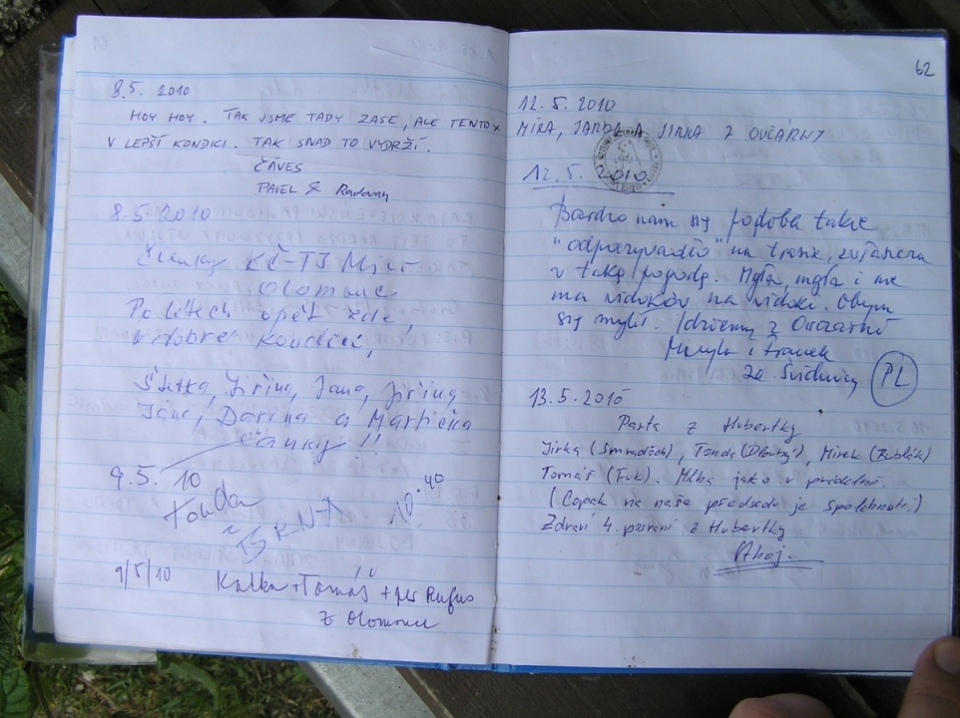 8.5. 2010
HOY HOY. TAK JSME TADY ZASE, ALE TENTOX
V LEPŠÍ KONDICI. TAK SNAD TO VYDRŽÍ.
ČÁVES
PAVEL & Radany
8.5.2010
Členky KČ-TJ
Olomouc
Po létech opět zde,
v dobré kondici,
Jiřina, Jana, Jiřina
Jana, Darina a Martička
čauky!!
9.5. 10
Tonda
10.40
9/5/10 Katka + Tomáš + pes Rufus
z Olomouc
62
12.5. 2010
MÍRA, JARDA A JIRKA Z OVČÁRNY
12.5. 2010
Bardzo nam się podoba takie
"odpoczywadło" na trasie, zwłaszcza
w taką pogodę. Mgła, mgła i nie
ma widoków na widoki. Obym
się mylił. Idziemy z Owczarni
Maryla i Franek
ze Świdnicy PL
13.5.2010
Parta z Hubertky
Jirka (Smraďoch), Tonda (Dlouhý), Mirek (Bublák)
Tomáš (Fuk). Mlha jako v prdeli.
(Copak na naše předsedu je spolehnutí.)
Zdraví 4. pozvaní z Hubertky
Ahoj.